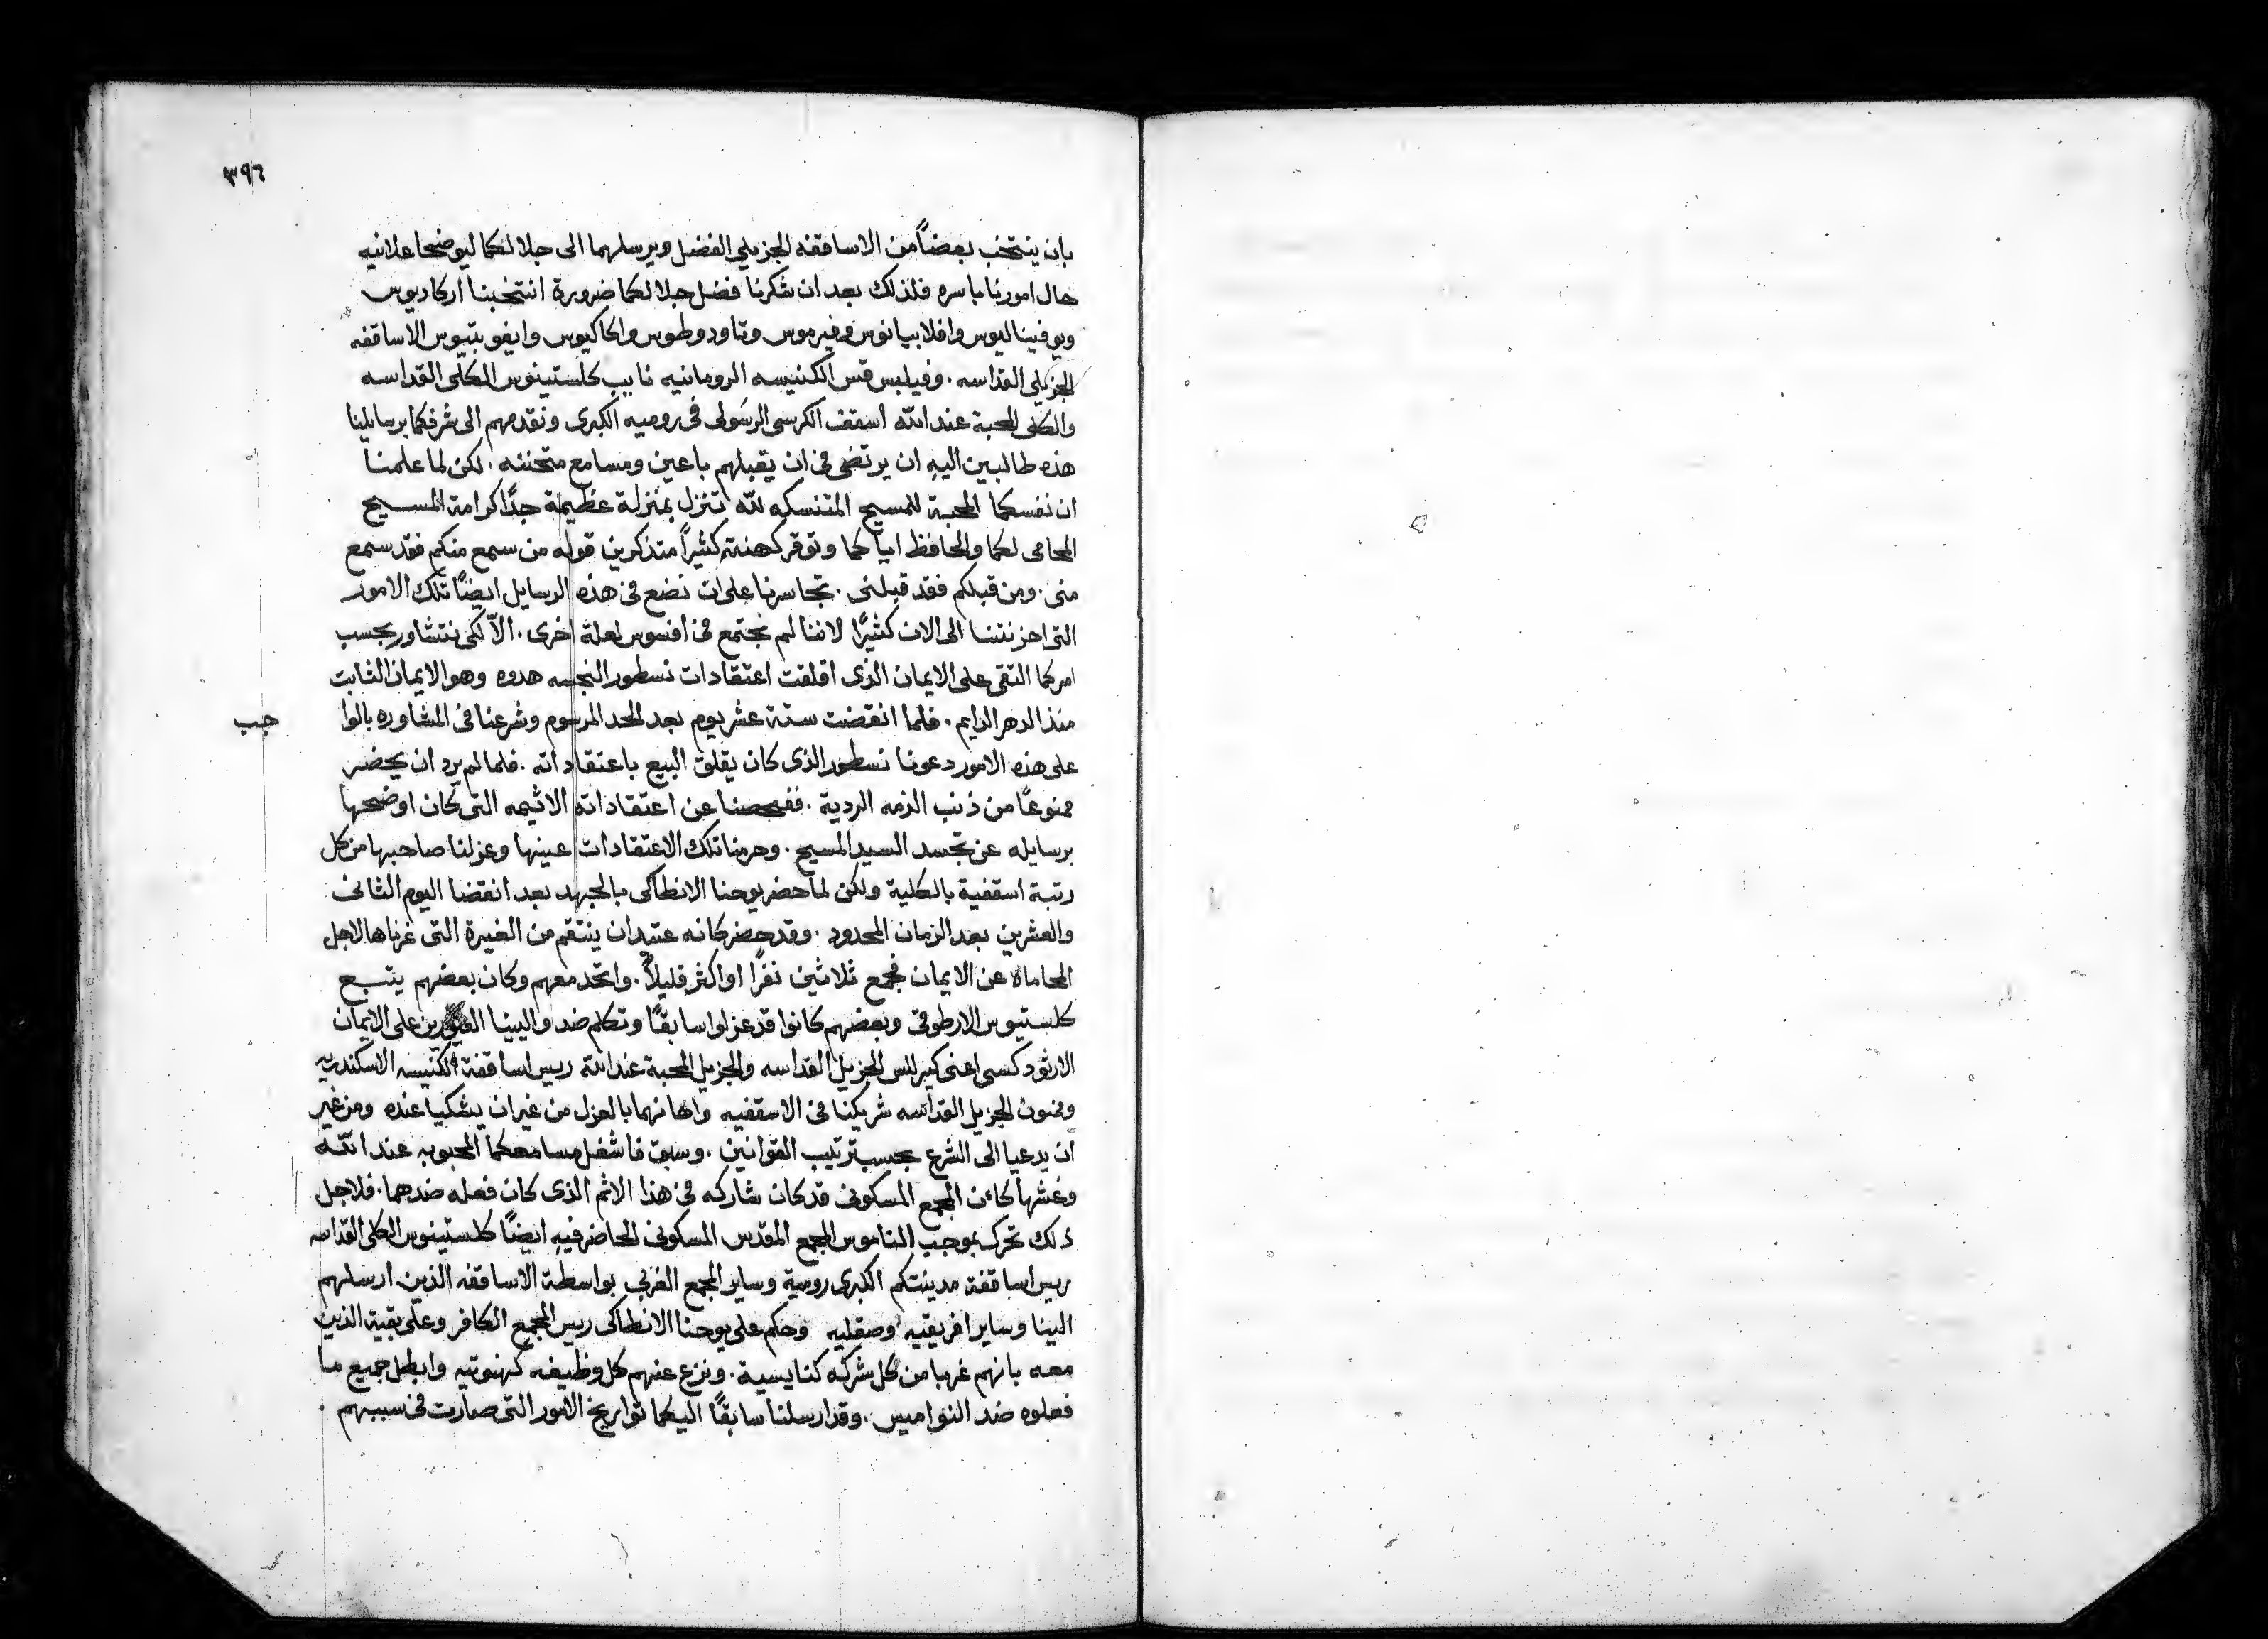 ٣٩٦
بان ينتخب بعضاً من الاساقفه الجزيلي الفضل ويرسلهما الى جلالتكما ليوضحا علانيه
حال امورنا باسره فلذلك بعد ان شكرنا فضل جلالتكما ضرورة انتخبنا اركاديوس
ويوفيناليوس وافلابيانوس وفيرموس وتاودوطوس واكاكيوس وايفوبتيوس الاساقفه
الجزيلي القداسه . وفيلبس قس الكنيسه الرومانيه نايب كلستينوس الكلى القداسه
والكلى المحبة عند الله اسقف الكرسى الرسولى فى روميه الكبرى ونقدمهم الى شرفكما برسايلنا
هذه طالبين اليه ان يرتضى فى ان يقبلهم باعين ومسامع متحننه . لكن لما علمنا
ان نفسكما المحبة للمسيح المتنسكه لله تنزل بمنزلة عظيمة جدًا كرامة المسيح
المحامى لكما والحافظ اياكما وتوقر كهنته كثيراً متذكرين قوله من سمع منكم فقد سمع
منى . ومن قبلكم فقد قبلنى . تجاسرنا على ان نضع فى هذه الرسايل ايضًا تلك الامور
التى احزنتنا الى الان كثيرًا لاننا لم نجتمع فى افسوس لعلة اخرى . الّا لكى نتشاور بحسب
امركما التقى على الايمان الذى اقلقت اعتقادات نسطور النجسه هدوه وهو الايمان الثابت
منذ الدهر الدايم . فلما انقضت ستة عشر يوم بعد الحد المرسوم وشرعنا فى المشاوره بالوا
جب
على هذه الامور دعونا نسطور الذى كان يقلق البيع باعتقاداته . فلما لم يرد ان يحضر
ممنوعًا من ذنب الزمه الردية . ففحصنا عن اعتقاداته الاثيمه التى كان اوضحها
برسايله عن تجسد السيد المسيح . وحرمنا تلك الاعتقادات عينها وعزلنا صاحبها من كل
رتبة اسقفية بالكلية ولكن لما حضر يوحنا الانطاكى بالجهد بعد انقضا اليوم الثانى
والعشرين بعد الزمان المحدود . وقد حضر كانه عتيد ان ينتقم من الغيرة التى غرناها لاجل
المحاماه عن الايمان فجمع ثلاثين نفرًا او اكثر قليلاً . واتحد معهم وكان بعضهم يتبع
كلستيوس الارطوقى وبعضهم كانوا قد عزلوا سابقًا وتكلم ضد والينا الغيورين على الايمان
الارثودكسى اعنى كيرللس الجزيل القداسه والجزيل المحبة عند الله ريس اساقفة الكنيسه الاسكندريه
وممنون الجزيل القداسه شريكنا فى الاسقفيه واهانهما بالعزل من غير ان يشكيا عنده ومن غير
ان يدعيا الى الشرع بحسب ترتيب القوانين . وسبق فاشغل مسامعكما المحبوبه عند الله
وغشها كاءن المجمع المسكونى قد كان شاركه فى هذا الاثم الذى كان فعله ضدهما . فلاجل
ذلك تحرك بموجب الناموس المجمع المقدس المسكونى الحاضر فيه ايضًا كلستينوس الكلى القداسه
ريس اساقفة مدينتكم الكبرى رومية وساير المجمع الغربى بواسطة الاساقفه الذين ارسلهم
الينا وساير افريقيه وصقليه وحكم على يوحنا الانطاكى ريس المجمع الكافر وعلى بقية الذين
معه بانهم غربا من كل شركه كنايسية . ونزع عنهم كل وظيفه كهنوتيه وابطل جميع ما
فعلوه ضد النواميس . وقد ارسلنا سابقًا اليكما تواريخ الامور التى صارت فى سببهم .